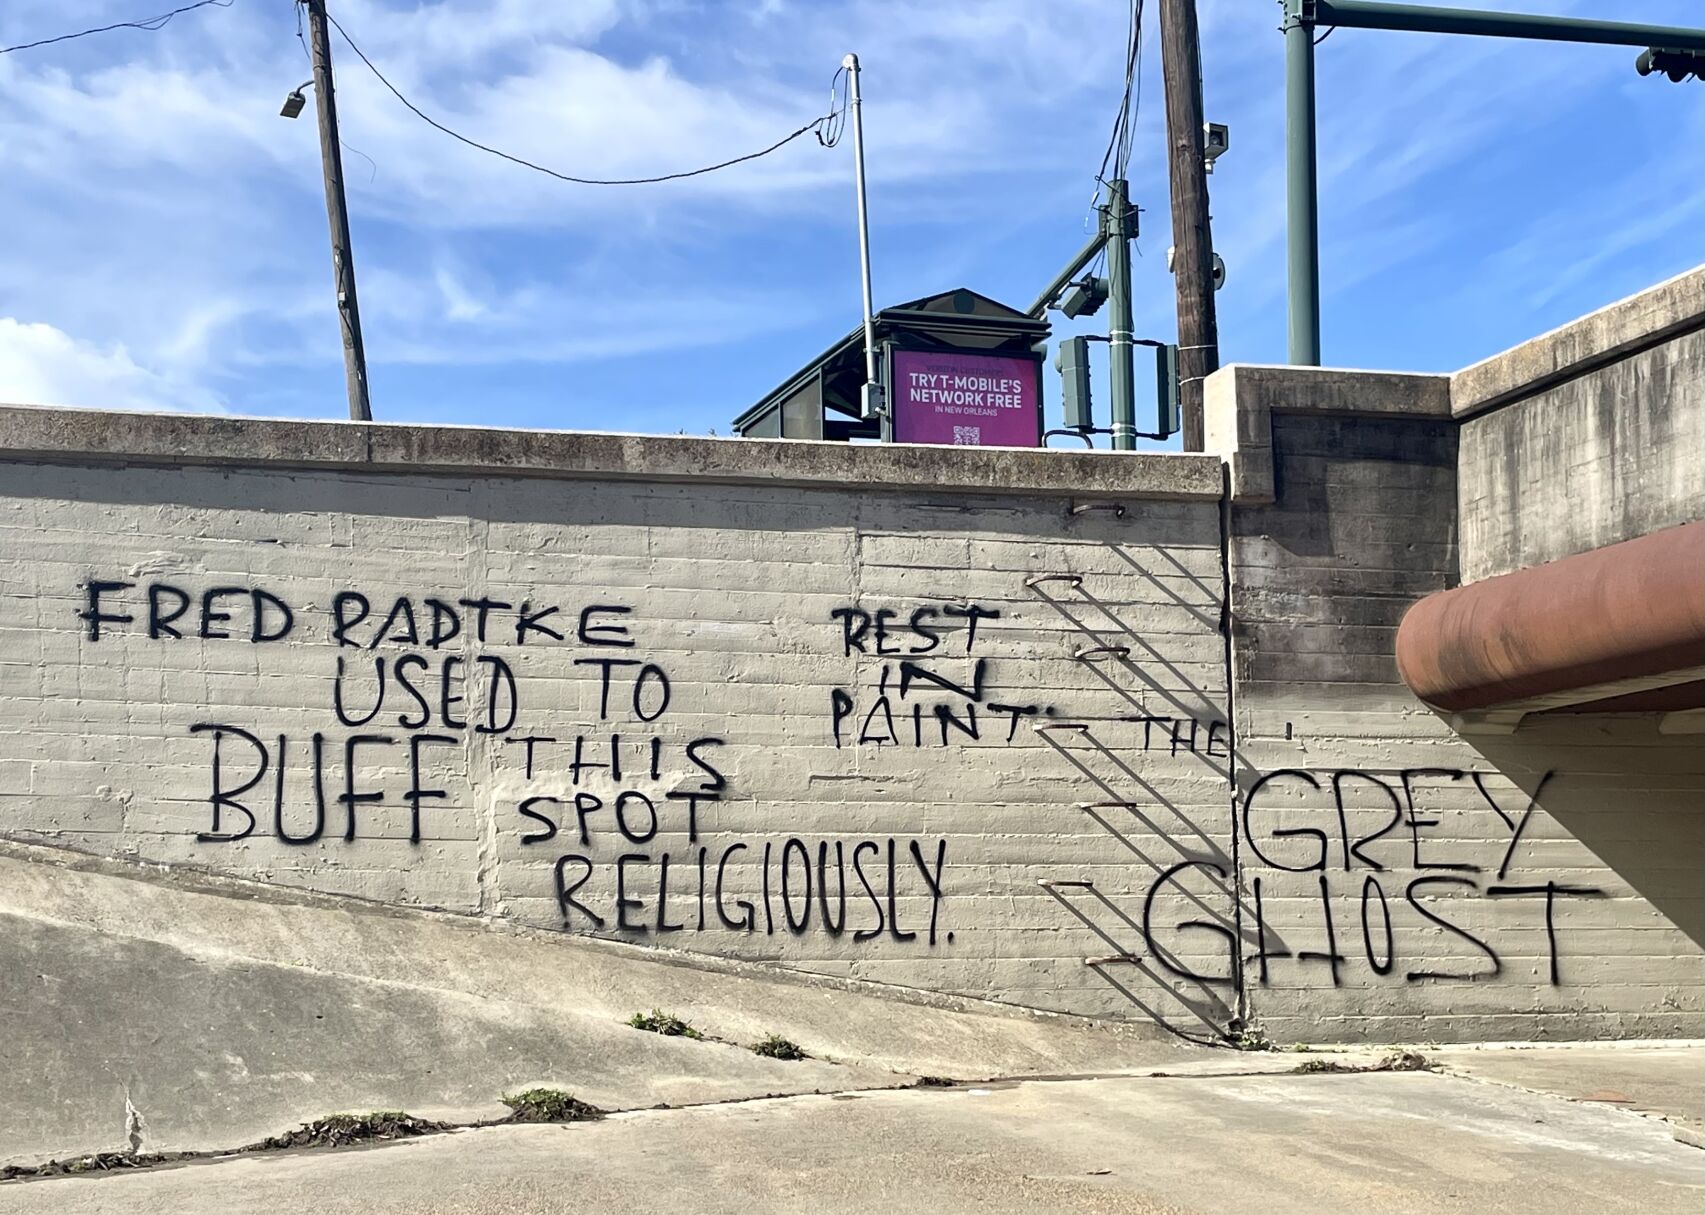 VERIZON CUSTOMERS
TRY T-MOBILE'S
NETWORK FREE
IN NEW ORLEANS
FRED RADTKE
USED TO
BUFF THIS
SPOT
RELIGIOUSLY.
REST
IN
PAINT
THE
GREY
GHOST